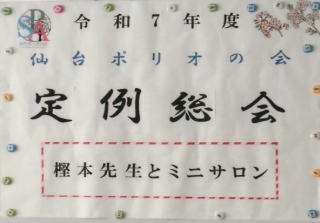 令和7年度
仙台ポリオの会
定例総会
樫本先生とミニサロン